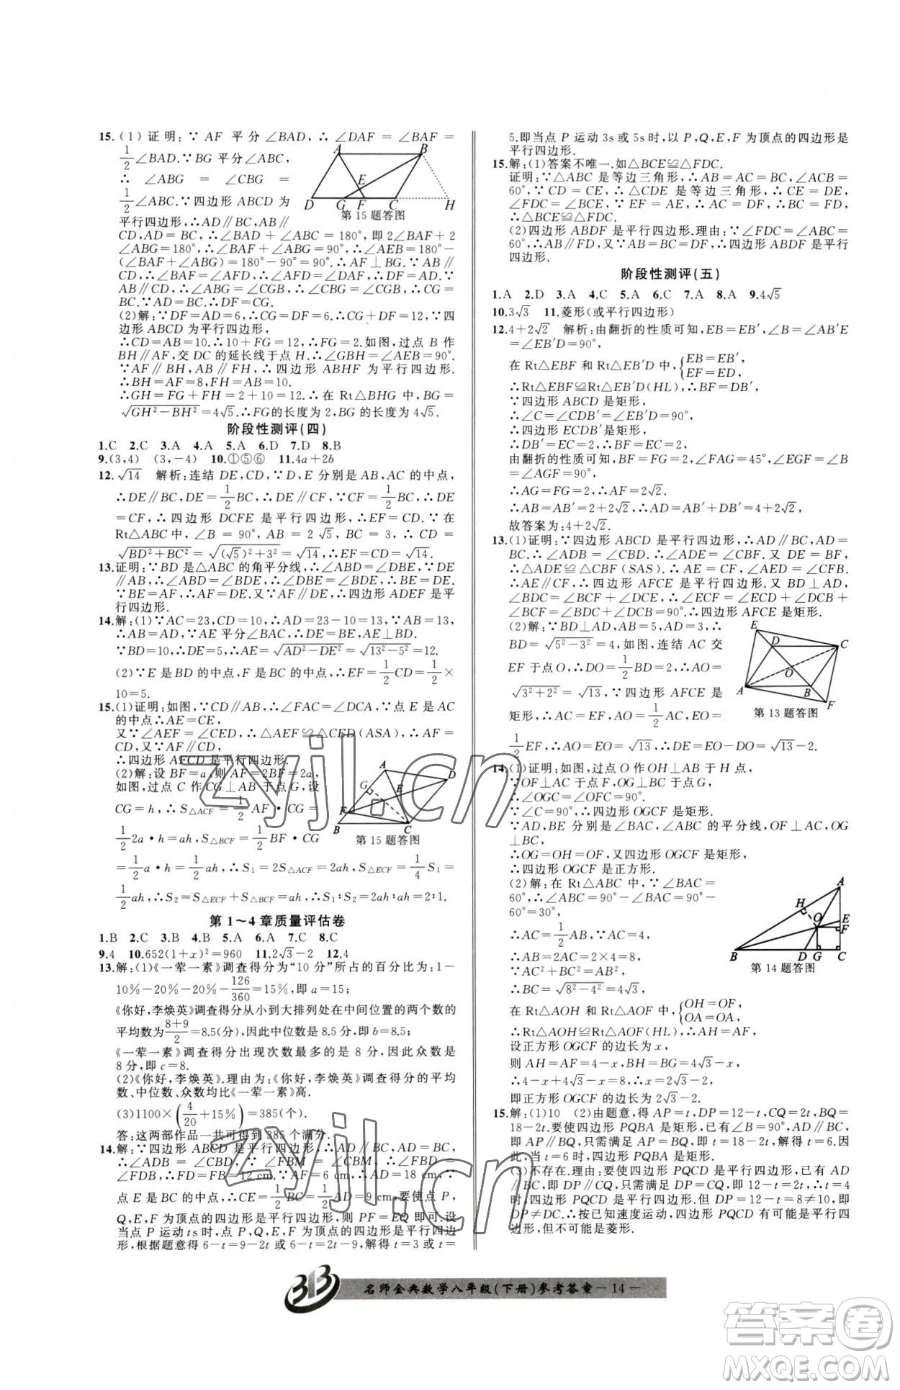 15.(1)证明:∵ AF 平分∠BAD,∴∠DAF=∠BAF=
1/2∠BAD.∵BG 平分∠ABC,
∴∠ABG=∠CBG=
1/2∠ABC.∵四边形 ABCD 为
平行四边形,∴AD∥BC,AB∥
第 15 题答图
CD,AD=BC,∴∠BAD+∠ABC=180°,即 2∠BAF+2
∠ABG=180°,∴∠BAF+∠ABG=90°,∴∠AEB=180°-
(∠BAF+∠ABG)=180°-90°=90°,∴AF⊥BG.∵AB∥
CD,∴∠BAF=∠AFD,∴∠AFD=∠DAF,∴DF=AD,∵AB
∥CD,∴∠ABG=∠CGB,∴∠CBG=∠CGB,∴CG=
BC.∵AD=BC,∴DF=CG.
(2)解:∵DF=AD=6,∴CG=DF=6.∴CG+DF=12.∵四
边形 ABCD 为平行四边形,
∴CD=AB=10.∴10+FG=12,∴FG=2,如图,过点 B 作
BH∥AF,交 DC 的延长线于点 H.∴∠GBH=∠AEB=90°.
∵AF∥BH,AB∥FH,∴四边形 ABHF 为平行四边形.
∴BH=AF=8,FH=AB=10.
∴GH=FG+FH=2+10=12,∴在 Rt△BHG 中,BG=
√GH²-BH²=4√5.∴FG的长度为 2,BG 的长度为 4√5.
阶段性测评(四)
1.C 2.C 3.A 4.A 5.A 6.D 7.D 8.B
9.(3,4) (3,-4) 10.①⑤⑥ 11.4a+2b
12.√14 解析:连结 DE,CD,∵D,E 分别是 AB,AC 的中点,
∴DE∥BC,DE=1/2BC,∴DE∥CF,∵CF=1/2BC,∴DE=
CF,∴四边形 DCFE 是平行四边形,∴EF=CD.∵在
Rt△ABC中,∠B=90°,AB=2√5,BC=3,∴CD=
√BD²+BC²=√(√5)²+3²=√14,∴EF=CD=√14.
13.证明:∵BD 是△ABC 的角平分线,∴∠ABD=∠DBE.∵DE
∥AB,∴∠ABD=∠BDE,∴∠DBE=∠BDE,∴BE=
DE.∵BE=AF,∴AF=DE,∴四边形 ADEF 是平
行四边形.
14.解:(1)∵AC=23,CD=10,∴AD=23-10=13,∵AB=13,
∴AB=AD,∵∠ABE=∠DAE,∴BE=DE,AE⊥BD.
∵BD=10,∴DE=5,∴AE=√AD²-DE²=√13²-5²=12.
(2)∵E 是 BD 的中点,F 是 BC 的中点,∴EF=1/2CD=1/2×
10=5.
15.(1)证明:如图,∵CD∥AB,∴∠FAC=∠DCA,∵点 E 是 AC
的中点∴AE=CE,
又∵∠AEF=∠CED,∴△AEF≌△CED(ASA),∴AF=CD,
∴四边形 AFCD 是平行四边形.
(2)解:设 BF=a,则 AF=2BF=2a,
如图,过点 C 作 CG⊥AB 于点 G,设
CG=h,∴S△ACF=1/2 AF·CG=
1/2 2a·h=ah,S△BCF=1/2 BF·CG
第 15 题答图
=1/2a·h=1/2ah,∴S₁=2S△ACF=2ah,S△ECF=1/4S₁=
1/2ah,∴S₂=S△ECF+S△BCF=ah,∴S₁:S₂=2:1.
第 1～4 章质量评估卷
1.B 2.C 3.A 4.C 5.A 6.A 7.C 8.C
9.4 10.652(1+x)²=960 11.2√3-2 12.4
13.解:(1)《一荤一素》调查得分为“10 分”所占的百分比为:1-
10%-20%-20%-126/360=15%,即 a=15;
《你好,李焕英》调查得分从小到大排列处在中间位置的两个数的
平均数为(8+9)/2=8.5(分),因此中位数是 8.5 分,即 b=8.5;
《一荤一素》调查得分出现次数最多的是 8 分,因此众数是
8 分,即 c=8.
(2)《你好,李焕英》.理由为:《你好,李焕英》调查得分的平
均数、中位数、众数均比《一荤一素》高.
(3)1100×(4/20+15%)=385(个).
答:这两部作品一共可得到 385 个满分.
14.解:∵四边形 ABCD 是平行四边形,∴AD∥BC,AD=BC,∴
∠ADB=∠CBD,∵∠FBM=∠CBD,∴∠FBD=
∠FDB,∴FB=FD=12 cm.∵AF=6 cm,∴AD=18 cm.∵
点 E 是 BC 的中点,∴CE=1/2BC=1/2AD=9 cm,要使点 P,
Q,E,F 为顶点的四边形是平行四边形,则 PF=EQ 即可.设
当点 P 运动 t 秒时,点 P,Q,E,F 为顶点的四边形是平行四边
形,根据题意得 6-t=9-2t 或 6-t=2t-9,解得 t=3 或 t=
5,即当点 P 运动 3s或 5s时,以 P,Q,E,F 为顶点的四边形是
平行四边形.
15.解:(1)答案不唯一.如△BCE≌△FDC.
证明:∵△ABC 是等边三角形,∴AC=BC,∠ACB=
60°,∵CD=CE,∴△EDC 是等边三角形,∴∠EDC=∠DCE=
60°,DE=CE.∵EF=AE,∴EF+DE=AE+CE,∴FD=AC=BC,
∴△BCE≌△FDC.
(2)四边形 ABDF 是平行四边形.理由:∵∠ABC=∠EDC=60°,
∴AB∥DF,又∵AB=AC=FD,∴四边形 ABDF 是平行四
边形.
阶段性测评(五)
1.A 2.D 3.A 4.C 5.C 6.B 7.A 8.A 9.4√5
10.3√3 11.菱形(或平行四边形)
12.4+2√2 解析:由翻折的性质可知,EB=EB′,∠B=∠AB′E
=∠EB′D=90°,
在 Rt△EBF 和 Rt△EB′D 中,{EB=EB′, EF=ED,
∴Rt△EBF≌Rt△EB′D(HL),∴BF=DB′,
∵四边形 ABCD 是矩形,
∴∠C=∠CDB′=∠EB′D=90°,
∴四边形 ECDB′是矩形,
∴DB′=EC=2,∴BF=EC=2,
由翻折的性质可知,BF=FG=2,∠FAG=45°,∠EGF=∠B
=∠AGF=90°,
∴AG=FG=2,∴AF=2√2.
∴AB=AB′=2+2√2,∴AD=AB′+DB′=4+2√2,
故答案为:4+2√2.
13.(1)证明:∵四边形 ABCD 是平行四边形,∴AD∥BC,AD=BC,
∴∠ADB=∠CBD,∴∠ADE=∠CBF.又∵DE=BF,
∴△ADE≌△CBF(SAS).∴AE=CF,∠AED=∠CFB,
∴AE∥CF,∴四边形 AFCE 是平行四边形.∵∠DCB+
∠BCF=90°,∠BCF=∠DCE,∴∠ECF=∠ECD+∠DCB+
∠BCF=∠DCB+2∠BCF=90°.∴四边形 AFCE 是矩形.
(2)解:∵BD⊥AD,AB=5,AD=3,∴
BD=√5²-3²=4,如图,连结 AC 交
EF 于点 O,∴DO=1/2BD=2,∴AO=
√3²+2²=√13,∵四边形 AFCE 是
矩形,∴AC=EF,∵AO=1/2AC,EO=
第 13 题答图
1/2EF,∴AO=EO=√13,∴DE=EO-DO=√13-2.
14.(1)证明:如图,过点 O 作 OH⊥AB 于 H 点,
∵OF⊥AC 于点 F,OG⊥BC 于点 G,
∴∠OGC=∠OFC=90°.
∵∠C=90°,∴四边形 OGCF 是矩形.
∵AD,BE 分别是∠BAC,∠ABC 的平分线,OF⊥AC,OG
⊥BC,
∴OG=OH=OF,∴四边形 OGCF 是正方形.
(2)解:在 Rt△ABC 中,∵∠BAC=
60°,
∴∠ABC=90°-∠BAC=90°-60°
=30°.
∴AC=1/2AB=1/2×8=4.
∵AC²+BC²=AB²,
∴BC=√8²-4²=4√3.
第 14 题答图
在 Rt△AOH 和 Rt△AOF 中,{OH=OF, OA=OA,
∴Rt△AOH≌Rt△AOF(HL),∴AH=AF,
设正方形 OGCF 的边长为 x,
则 AH=AF=4-x,BH=BG=4√3-x,
∴4-x+4√3-x=8,∴x=2√3-2,
即正方形 OGCF 的边长为 2√3-2.
15.解:(1)10 (2)由题意,得 AP=t,DP=12-t,CQ=2t,BQ=
18-2t.要使四边形 PQBA 是矩形,已有∠B=90°,AD∥BC
即 AP∥BQ,只需满足 AP=BQ,即 t=18-2t,解得 t=6.因
此,当 t=6 时,四边形 PQBA 是矩形.
(3)不存在.理由:要使四边形 PQCD 是平行四边形,已有 AD
∥BC,即 DP∥CQ,只需满足 DP=CQ,即 12-t=2t,∴t=
4,t=4时,四边形 PQCD 是平行四边形,但 DP=12-t=8≠10,即
DP≠DC.∴按已知速度运动,四边形 PQCD 只可能是平行四
边形,但不可能是菱形.
名师金典数学八年级(下册)参考答案 -14-
zyjl.cn
zyjl.cn
答案圈
MXQE.COM